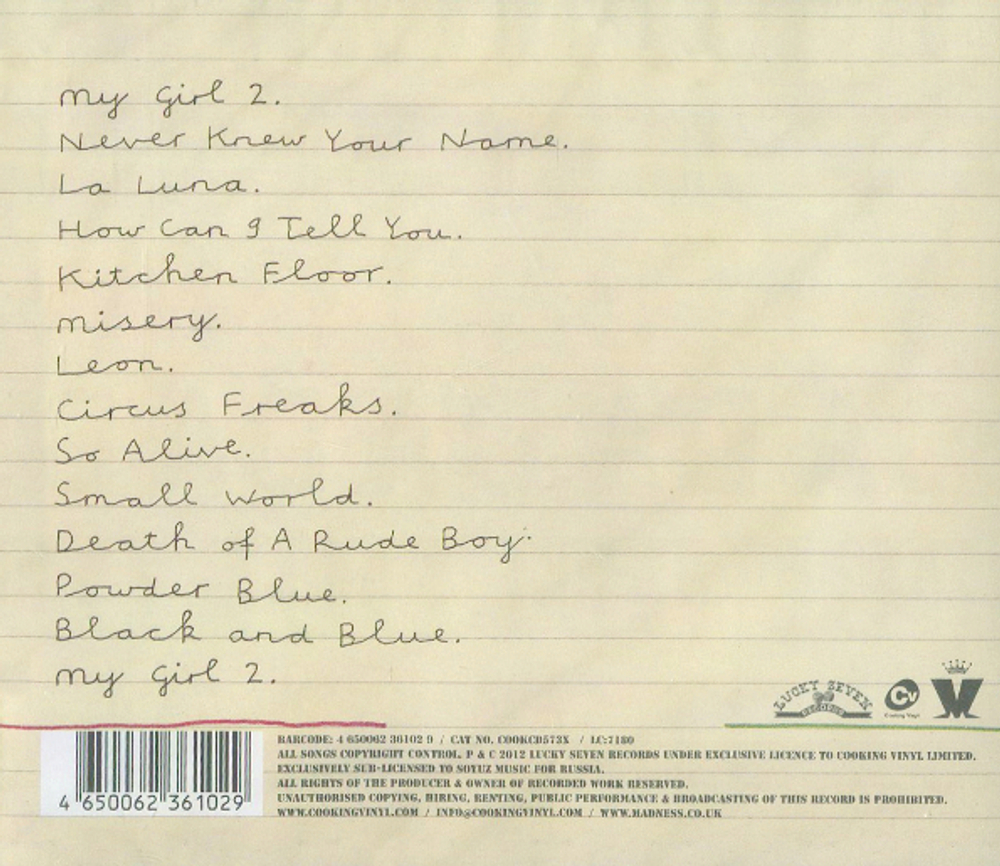 My Girl 2.
Never Knew Your Name.
La Luna.
How Can I Tell You.
Kitchen Floor.
Misery.
Leon.
Circus Freaks.
So Alive.
Small World.
Death of A Rude Boy.
Powder Blue.
Black and Blue.
My Girl 2.
LUCKY SEVEN
RECORDS
CV
Cooking Vinyl
M
BARCODE: 4 650062 36102 9 / CAT NO. COOKCD573X / LC:7180
ALL SONGS COPYRIGHT CONTROL. P & C 2012 LUCKY SEVEN RECORDS UNDER EXCLUSIVE LICENCE TO COOKING VINYL LIMITED.
EXCLUSIVELY SUB-LICENSED TO SOYUZ MUSIC FOR RUSSIA.
ALL RIGHTS OF THE PRODUCER & OWNER OF RECORDED WORK RESERVED.
UNAUTHORISED COPYING, HIRING, RENTING, PUBLIC PERFORMANCE & BROADCASTING OF THIS RECORD IS PROHIBITED.
WWW.COOKINGVINYL.COM / INFO@COOKINGVINYL.COM / WWW.MADNESS.CO.UK
4 650062 361029